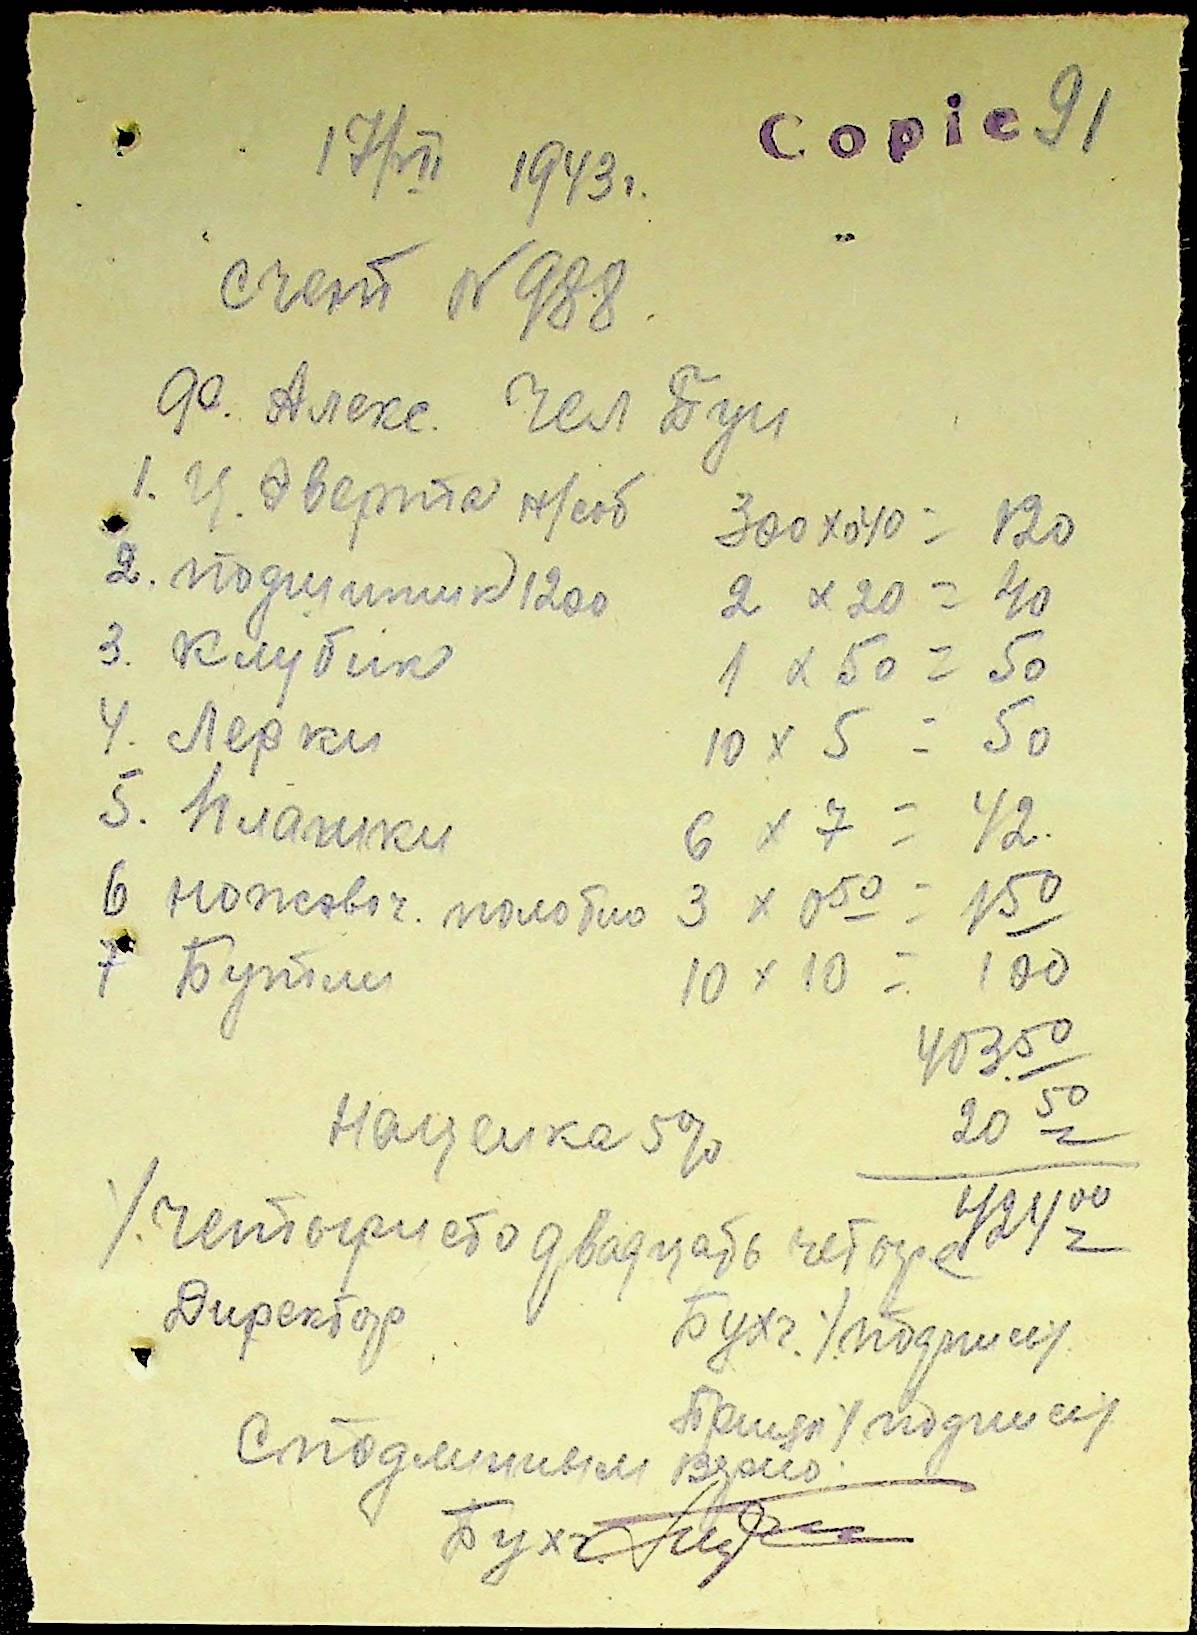 Copie 91
17/VII 1943г.
Счет N 988.
Алекс.
1. н/соб 300 x 0,40 = 120
2. подшипник 1200 2 x 20 = 40
3. Клубик 1 x 50 = 50
4. Лерки 10 x 5 = 50
5. Плашки 6 x 7 = 42.
6 ножовоч. полотно 3 x 0 50 = 1 50
7 Бутыли 10 x 10 = 100
403.50
Наценка 5% 20 50
424 00
/. Четыриста двадцать четыре
Директор Бухг. /. подпись/.
/ подпись/
С подлинным верно.
Бухг.